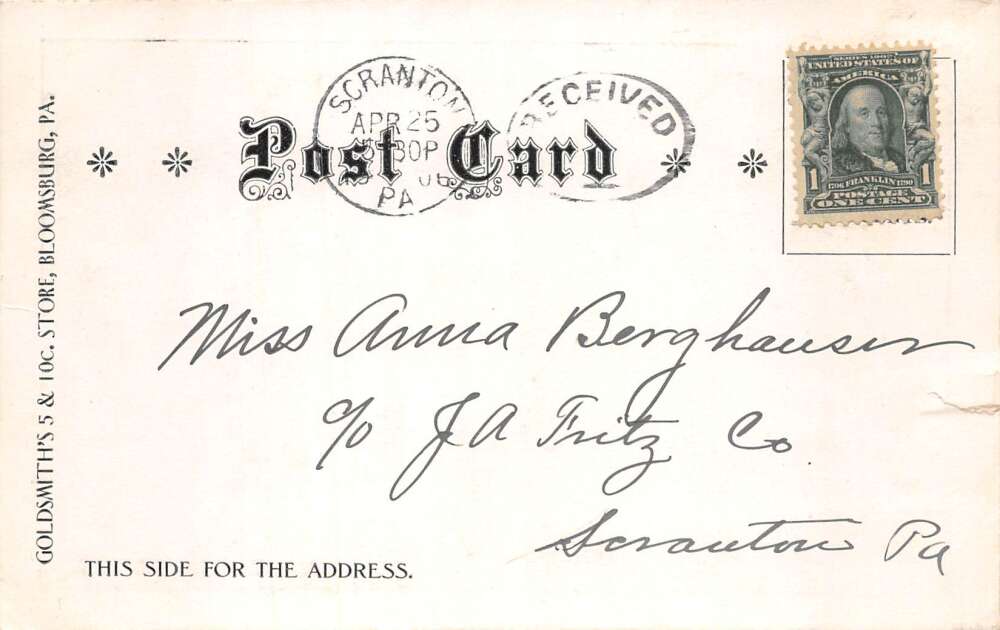 GOLDSMITH'S 5 & 10C. STORE, BLOOMSBURG, PA.
Post Card
SCRANTON
APR 25
30P
PA
RECEIVED
1
SERIES 1902
UNITED STATES OF
AMERICA
1706 FRANKLIN 1790
1 1
POSTAGE
ONE CENT
Miss Anna Berghauser
c/o J A Fritz Co
Scranton Pa
THIS SIDE FOR THE ADDRESS.